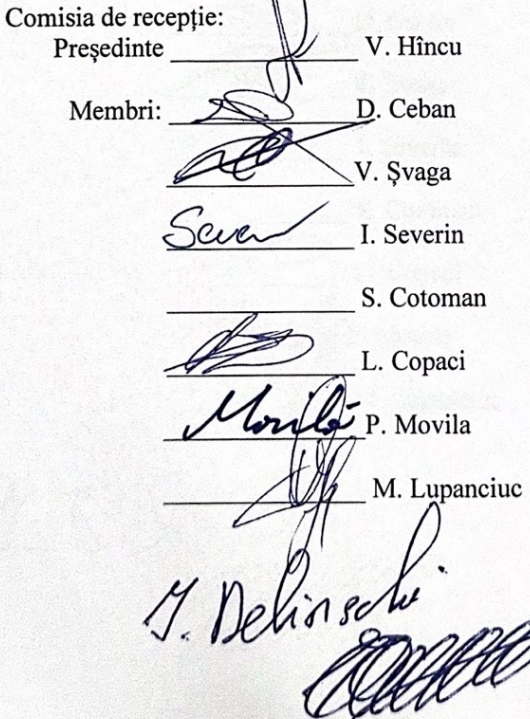 Comisia de recepție:
Președinte ____________ V. Hîncu
Membri: ____________ D. Ceban
____________ V. Șvaga
____________ I. Severin
____________ S. Cotoman
____________ L. Copaci
Movilă P. Movila
____________ M. Lupanciuc